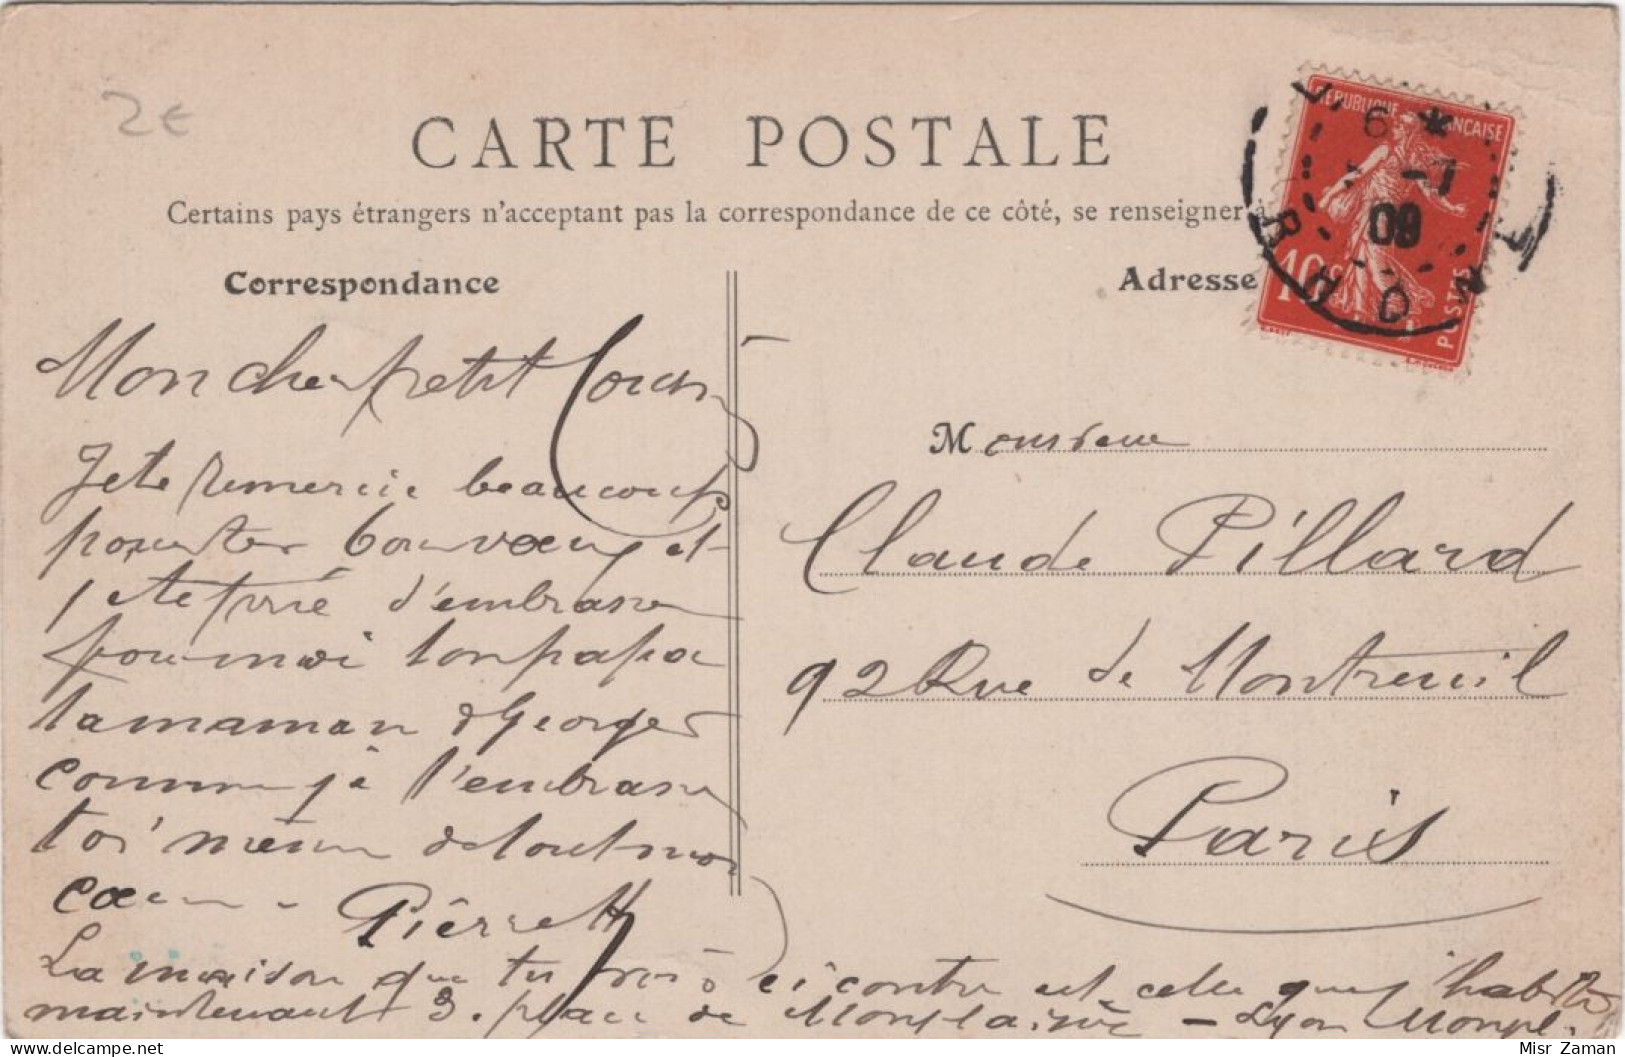 2€
CARTE POSTALE
Certains pays étrangers n'acceptent pas la correspondance de ce côté, se renseigner à
Correspondance
Adresse
RÉPUBLIQUE FRANÇAISE
10c
POSTES
6 *
-7
09
RHONE
Mon cher petit Cousin
Je te remercie beaucoup
pour tes bons vœux et
je te prie d'embrasser
pour moi ton papa
ta maman & Georges
comme je t'embrasse
toi même de tout mon
cœur. Pierrette
La maison que tu vois ci contre est celle que j'habite
maintenant 3. place de Monplaisir - Lyon Monpl.
Monsieur
Claude Pillard
92 Rue de Montreuil
Paris
Misr Zaman